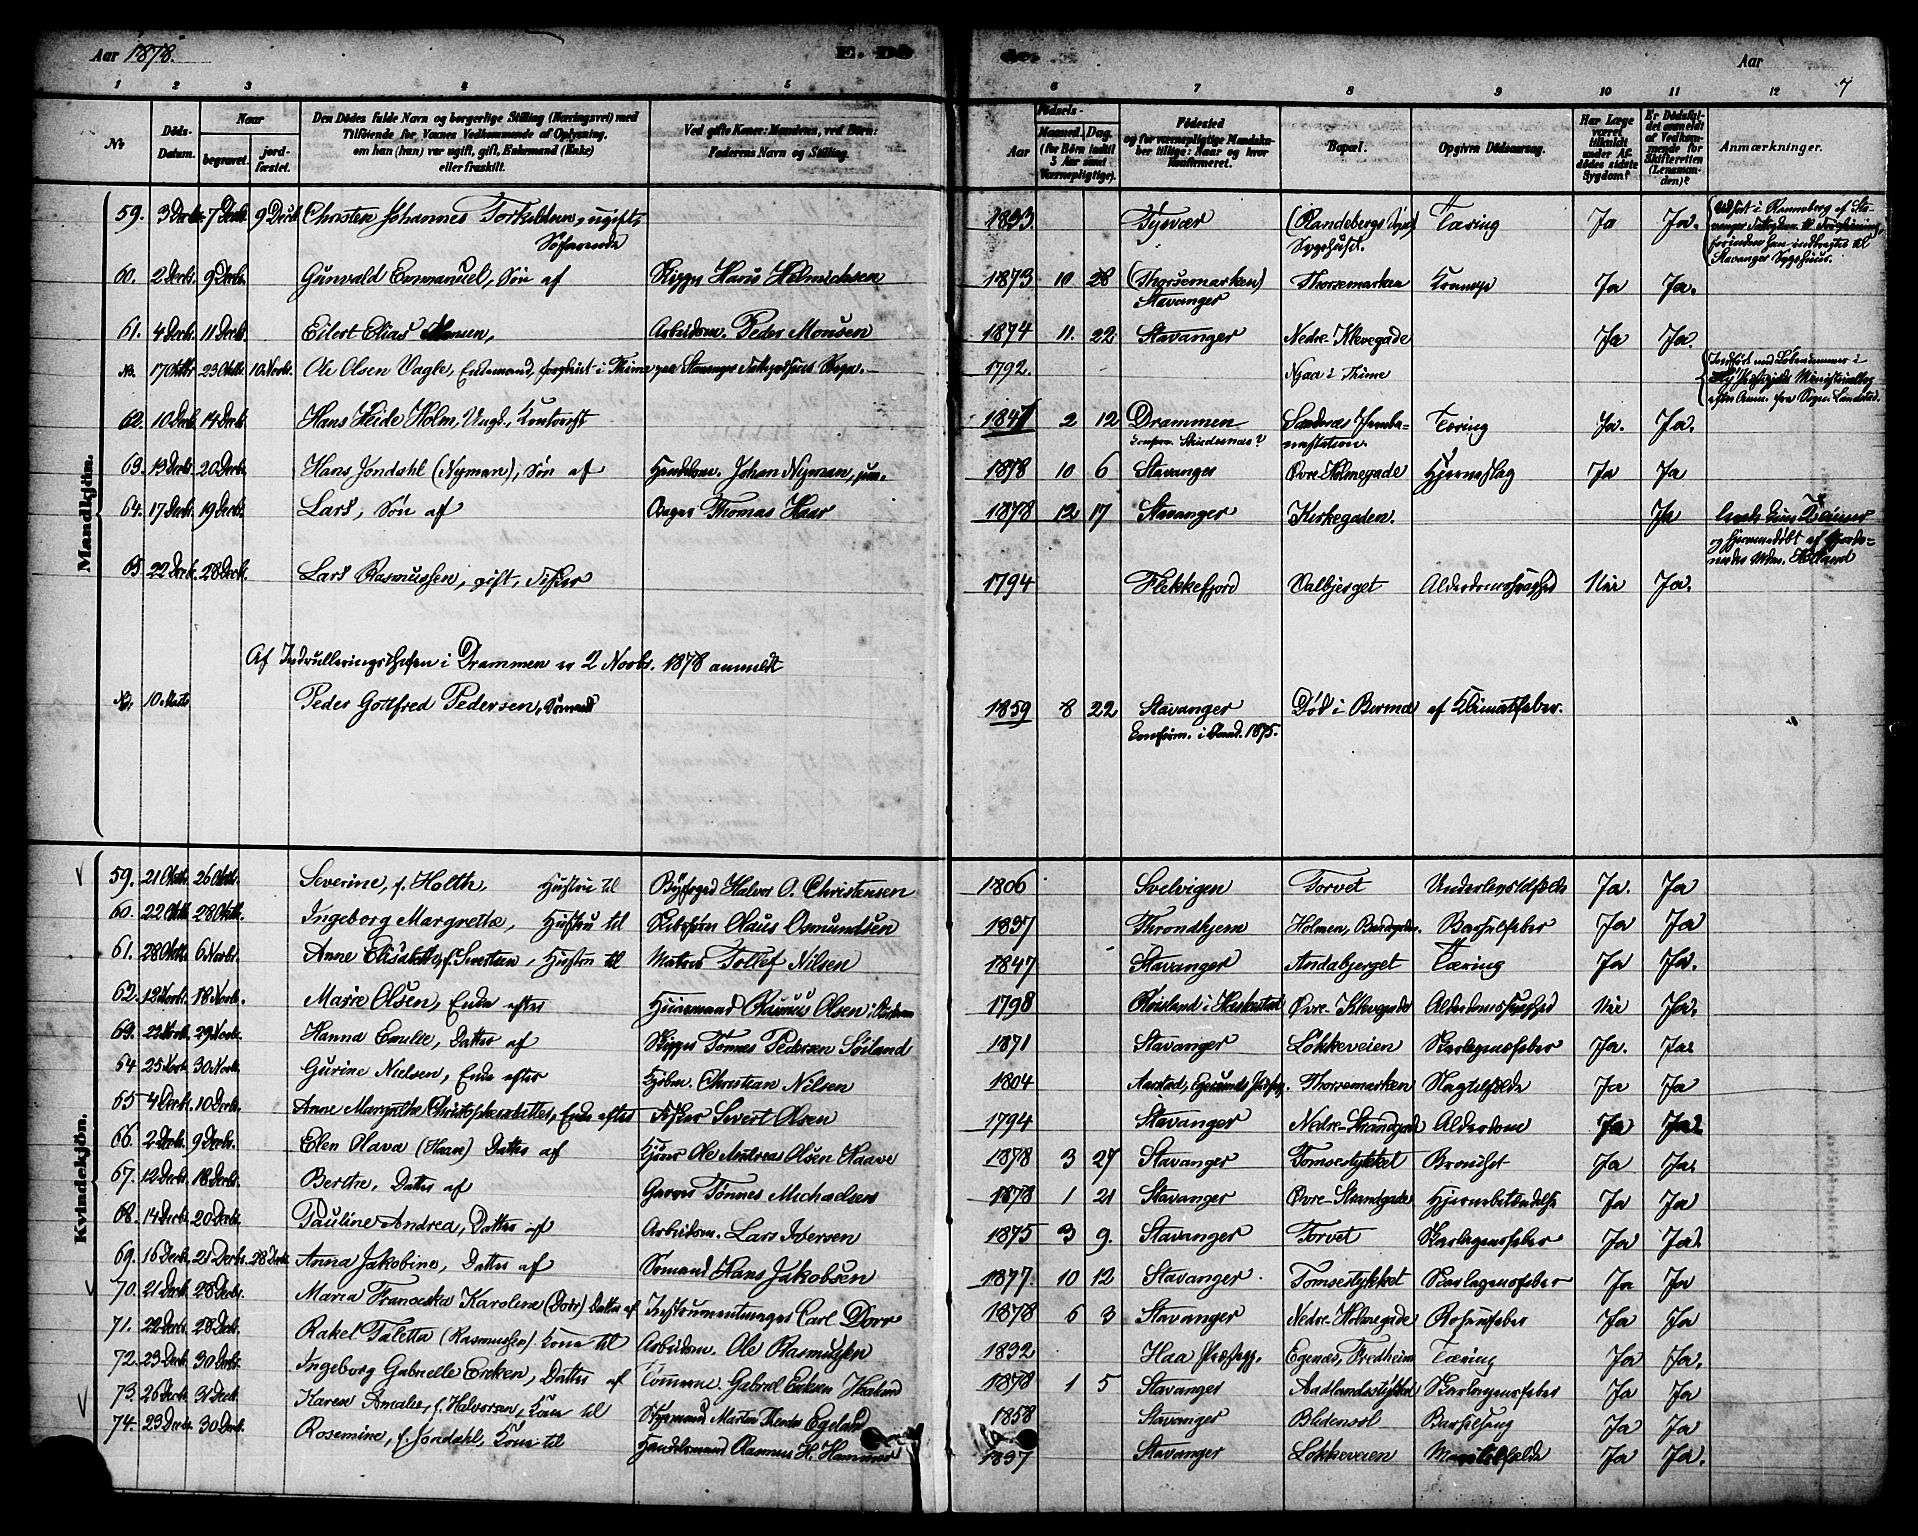 Aar 1878. E. Dö de. Aar 7
1 2 3 4 5 6 7 8 9 10 11 12
No Döds-Datum. Naar begravet. jordfæstet. Den Dödes fulde Navn og borgerlige Stilling (Næringsvei) med Tilföiende for Voxnes Vedkommende af Oplysning, om han (hun) var ugift, gift, Enkemand (Enke) eller fraskilt. Ved gifte Koner: Mandens, ved Börn: Faderens Navn og Stilling. Födsels- Aar Maaned. Dag. (for Börn indtil 3 Aar samt Værnepligtige). Födested og for værnepligtige Mandskaber tillige: Naar og hvor konfirmeret. Bopæl. Opgiven Dödsaarsag. Har Læge været tilkaldt under Afdödes sidste Sygdom? Er Dödsfaldet anmeldt af Vedkommende for Skifteretten (Lensmanden)? Anmærkninger.
Mandkjön.
59. 3 Decbr. 7 Decbr. 9 Decbr. Christen Johannes Torkildsen, ugift, Söfarende 1833 Tysvær Sygehuset. Tæring Ja Ja. Stavanger Sygehuus.
60. 2 Decbr. 9 Decbr. Gunvald Emmanuel, Sön af Skipper Hans Helmichsen 1873 10 28 (Thorsemarken) Stavanger Thorsemarken Ja Ja.
61. 4 Decbr. 11 Decbr. Eilert Elias Monsen, Arbeidsm. Peder Monsen 1874 11. 22 Stavanger Nedre Klevegade Ja Ja.
Nb. 17 Oktbr 23 Oktbr. 10 Novbr. Ole Olsen Vagle, Enkemand, 1792. Njaa i Thime
62. 10 Decbr. 14 Decbr. Hans Heide Holm, Ungk., Kontorist 1847 2 12 Drammen Sandnæs Jernbanestation. Tæring Ja. Ja.
63. 13 Decbr. 20 Decbr. Hans Jøndahl (Nyman), Sön af Handelsm. Johan Nyman, jun. 1878 10 6 Stavanger Øvre Holmegade Hjerneslag Ja Ja
64. 17 Decbr. 19 Decbr. Lars, Sön af Bager Thomas Haar 1878 12 17 Stavanger Kirkegaden. Ja
og hjemmedöbt af Mdm. Helland
65 22 Decbr. 28 Decbr. Lars Rasmussen, gift, Fisker 1794 Flekkefjord Valbjerget Alderdomssvaghed Nei Ja.
Af Indrulleringschefen i Drammen er 2 Novbr. 1878 anmeldt
Nb. 10 Marts Peder Gotfred Pedersen, Sömand 1859 8 22 Stavanger Död i Burma af Klimatfeber.
Confirm. i 1875.
Kvindekjön.
59. 21 Oktbr. 26 Oktbr. Severine, f. Holth, Hustru til Byfoged Halvor O. Christensen 1806 Svelvigen Torvet Underlivslidelse Ja. Ja
60. 22 Oktbr. 28 Oktbr. Ingeborg Margrethe, Hustru til Olaus Osmundsen 1837 Throndhjem Holmen, Barselfeber Ja Ja
61. 28 Oktbr. 6 Novbr. Anne Elisabeth, f. Sivertsen, Hustru til Matros Tollef Nilsen 1847 Stavanger Andabjerget Tæring Ja Ja.
62. 12 Novbr. 18 Novbr. Marie Olsen, Enke efter Huusmand Rasmus Olsen 1798 Øvre Klevegade Alderdomssvaghed Nei Ja.
63. 22 Novbr. 29 Novbr. Hanna Emilie, Datter af Skipper Tønnes Pedersen Soiland 1871 Stavanger Løkkeveien Skarlagensfeber Ja. Ja.
64 25 Novbr. 30 Novbr. Gurine Nielsen, Enke efter Kjøbm. Christian Nilsen 1804 Aarstad, Thorsemarken Ja Ja
65 4 Decbr. 10 Decbr. Anne Margrethe Christophersdatter, Enke efter Fisker Sivert Olsen 1794 Stavanger Nedre Strandgade Alderdom Ja Ja.
66 2 Decbr. 9 Decbr. Elen Olava (Haave) Datter af Ole Andreas Olsen Haave 1878 3 27 Stavanger Tomsestykket Bronchit Ja Ja.
67. 12 Decbr. 18 Decbr. Berthe, Datter af Garver Tönnes Michaelsen 1878 1 21 Stavanger Øvre Strandgade Hjernebetændelse Ja Ja
68. 14 Decbr. 20 Decbr. Pauline Andrea, Datter af Arbeidsm. Lars Iversen 1875 3 9. Stavanger Torvet Skarlagensfeber Ja Ja.
69. 16 Decbr. 21 Decbr. 28 Decbr. Anna Jakobine, Datter af Sömand Hans Jakobsen 1877. 10 12 Stavanger. Tomsestykket Skarlagensfeber Ja Ja
70. 21 Decbr. 28 Decbr. Maria Franciska Karoline (Dorr) Datter af Instrumentmager Carl Dorr 1878 6 3 Stavanger Nedre Holmegade Rosenfeber Ja Ja
71. 22 Decbr. 28 Decbr. Rakel Taletta (Rasmussen) Kone til Arbeidsm. Ole Rasmussen 1832 Haa Præstegj. Egenæs, Fredheim Tæring Ja Ja.
72. 23 Decbr. 30 Decbr. Ingeborg Gabrielle Ericksen, Datter af Tömmerm. Gabriel Ericksen Haaland 1878 1 5 Stavanger Aadlandsstykket Skarlagensfeber Ja Ja
73. 26 Decbr. 31 Decbr. Karen Amalie, f. Halvorsen, Kone til Styrmand Martin Egeland 1858 Stavanger Bledensøl Barselseng Ja Ja
74. 23 Decbr. 30 Decbr. Rosemine, f. Jøndahl, Kone til Handelsmand Rasmus H. Hammer 1837 Stavanger Løkkeveien Ja Ja.